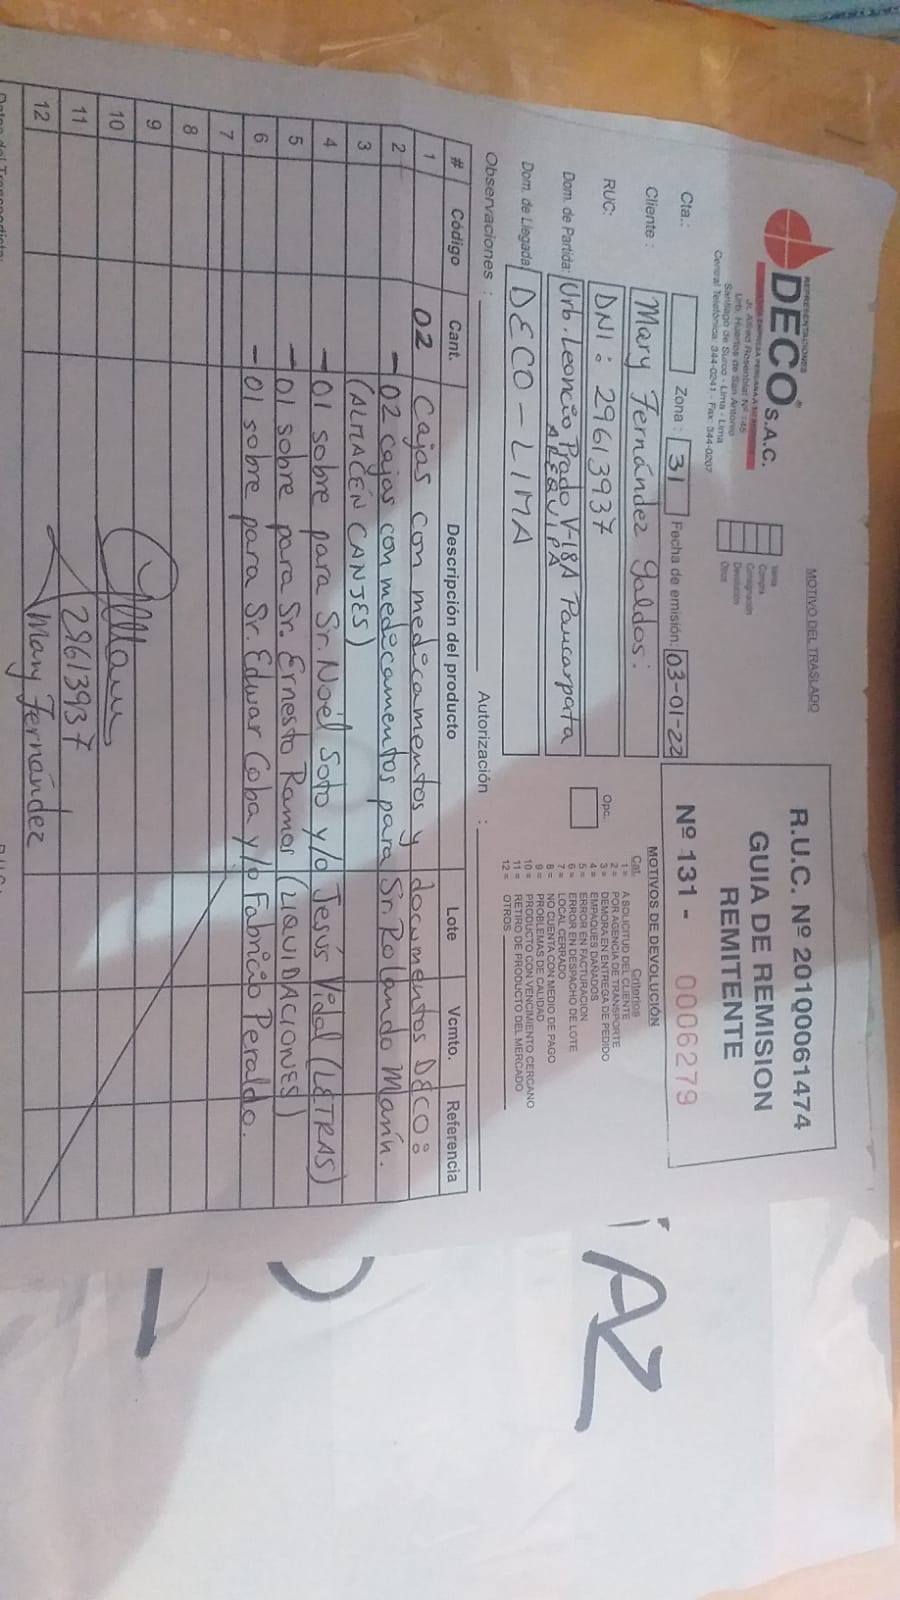 REPRESENTACIONES
DECO® S.A.C.
UNA EMPRESA PERUANA A SU SERVICIO
Jr. Alfred Rosenblat Nº 145
Urb. Huertos de San Antonio
Santiago de Surco - Lima - Lima
Central Telefónica: 344-0241 - Fax: 344-0207
MOTIVO DEL TRASLADO
Venta
Compra
Consignación
Devolución
Otros
R.U.C. Nº 20100061474
GUIA DE REMISION
REMITENTE
Nº 131 - 0006279
Cta.: Zona : 31 Fecha de emisión: 03-01-22
Cliente : Mary Fernández Galdos.
RUC: DNI: 29613937
Dom. de Partida: Urb. Leoncio Prado V-18A Paucarpata
AREQUIPA
Dom. de Llegada: DECO - LIMA
MOTIVOS DE DEVOLUCIÓN
Opc. Cat. Criterios
1 = A SOLICITUD DEL CLIENTE
2 = POR AGENCIA DE TRANSPORTE
3 = DEMORA EN ENTREGA DE PEDIDO
4 = EMPAQUES DAÑADOS
5 = ERROR EN FACTURACION
6 = ERROR EN DESPACHO DE LOTE
7 = LOCAL CERRADO
8 = NO CUENTA CON MEDIO DE PAGO
9 = PROBLEMAS DE CALIDAD
10 = PRODUCTO CON VENCIMIENTO CERCANO
11 = RETIRO DE PRODUCTO DEL MERCADO
12 = OTROS
Observaciones : Autorización :
# Código Cant. Descripción del producto Lote Vcmto. Referencia
1 02 Cajas con medicamentos y documentos DECO:
2 - 02 cajas con medicamentos para Sr. Rolando Marín.
3 (ALMACÉN CANJES)
4 - 01 sobre para Sr. Noél Soto y/o Jesús Vidal (LETRAS)
5 - 01 sobre para Sr. Ernesto Ramos (LIQUIDACIONES)
6 - 01 sobre para Sr. Edwar Coba y/o Fabricio Peraldo.
7
8
9
10
11 29613937
12 Mary Fernández
Datos del Transportista:
AZ